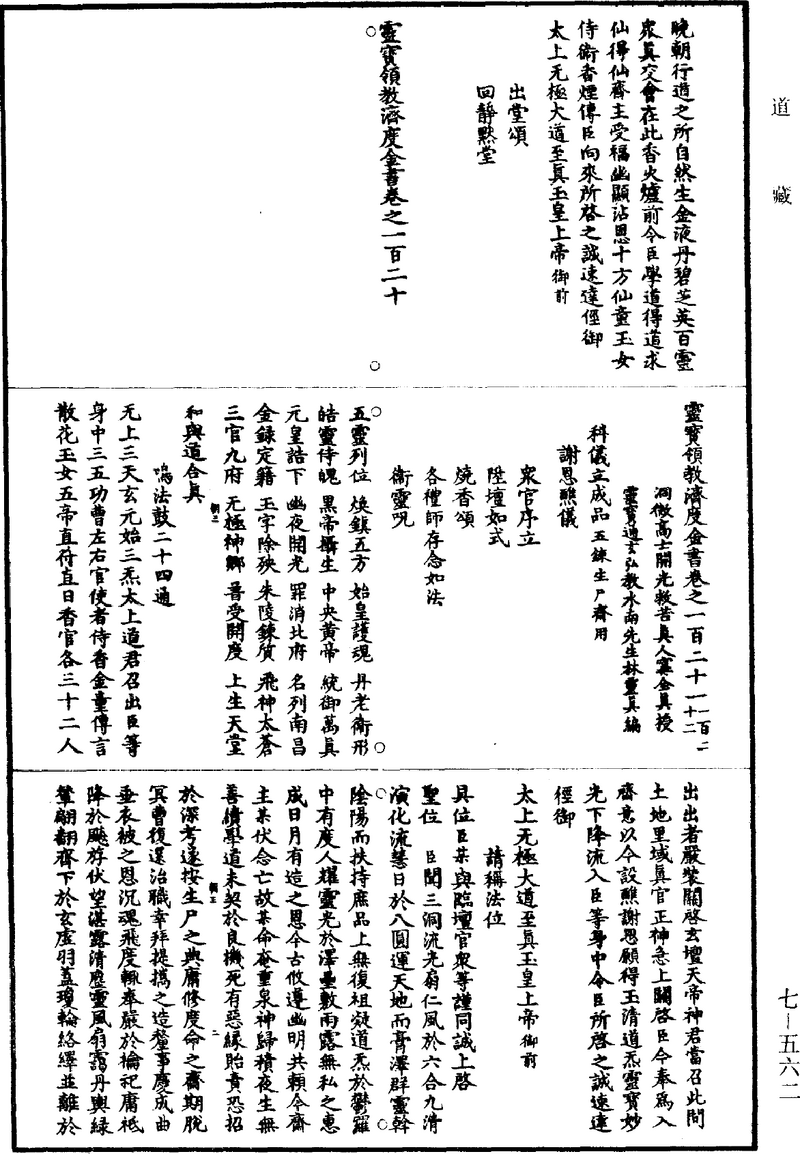 道藏
曉朝行道之所自然生金液丹碧芝英百靈
眾真交會在此香火爐前令臣學道得道求
仙得仙齋主受福幽顯沾恩十方仙童玉女
侍衛香煙傳臣向來所啓之誠速達徑御
太上无極大道至真玉皇上帝御前
出堂頌
回靜默堂
靈寶領教濟度金書卷之一百二十
靈寶領教濟度金書卷之一百二十一一百二十二
洞微高士開光救苦真人寗全真授
靈寶通玄弘教水南先生林靈真編
科儀立成品五鍊生尸齋用
謝恩醮儀
眾官序立
陞壇如式
燒香頌
各禮師存念如法
衛靈呪
五靈列位 煥鎮五方 始皇護魂 丹老衛形
皓靈侍魄 黑帝攝生 中央黃帝 統御萬真
元皇誥下 幽夜開光 罪消北府 名列南昌
金錄定籍 玉字除殃 朱陵鍊質 飛神太蒼
三官九府 无極神鄉 普受開度 上生天堂
和與道合真
鳴法鼓二十四通
无上三天玄元始三炁太上道君召出臣等
身中三五功曹左右官使者侍香金童傳言
散花玉女五帝直符直日香官各三十二人
出出者嚴裝關啓玄壇天帝神君當召此間
土地里域真官正神急上關啓臣今奉為入
齋意以今設醮謝恩願得玉清道炁靈寶妙
光下降流入臣等身中令臣所啓之誠速達
徑御
太上无極大道至真玉皇上帝御前
請稱法位
具位臣某與臨壇官眾等謹同誠上啓
聖位 臣聞三洞流光扇仁風於六合九清
演化流慧日於八圓運天地而膏澤群靈幹
陰陽而扶持庶品上無復祖欻道炁於鬱羅
中有度人耀靈光於澤曇敷雨露無私之惠
成日月有造之恩今古攸遵幽明共賴今齋
主某伏念亡故某命奄重泉神歸積夜生無
善績學道未契於良機死有惡緣貽責恐招
於深考遂按生尸之典庸修度命之齋期脫
冥曹復還治職幸拜提攜之造 事慶成曲
垂衣被之恩沉魂飛度輒奉嚴於禴祀庸祗
降於飈斿伏望湛露清塵靈風扇靄丹輿綠
輦翩翩齊下於玄虛羽蓋瓊輪絡繹並離於
七－五六二